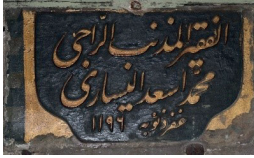 الفقير المذنب الراجى
محمد اسعد اليسارى
غفر ذنوبه
١١٩٦